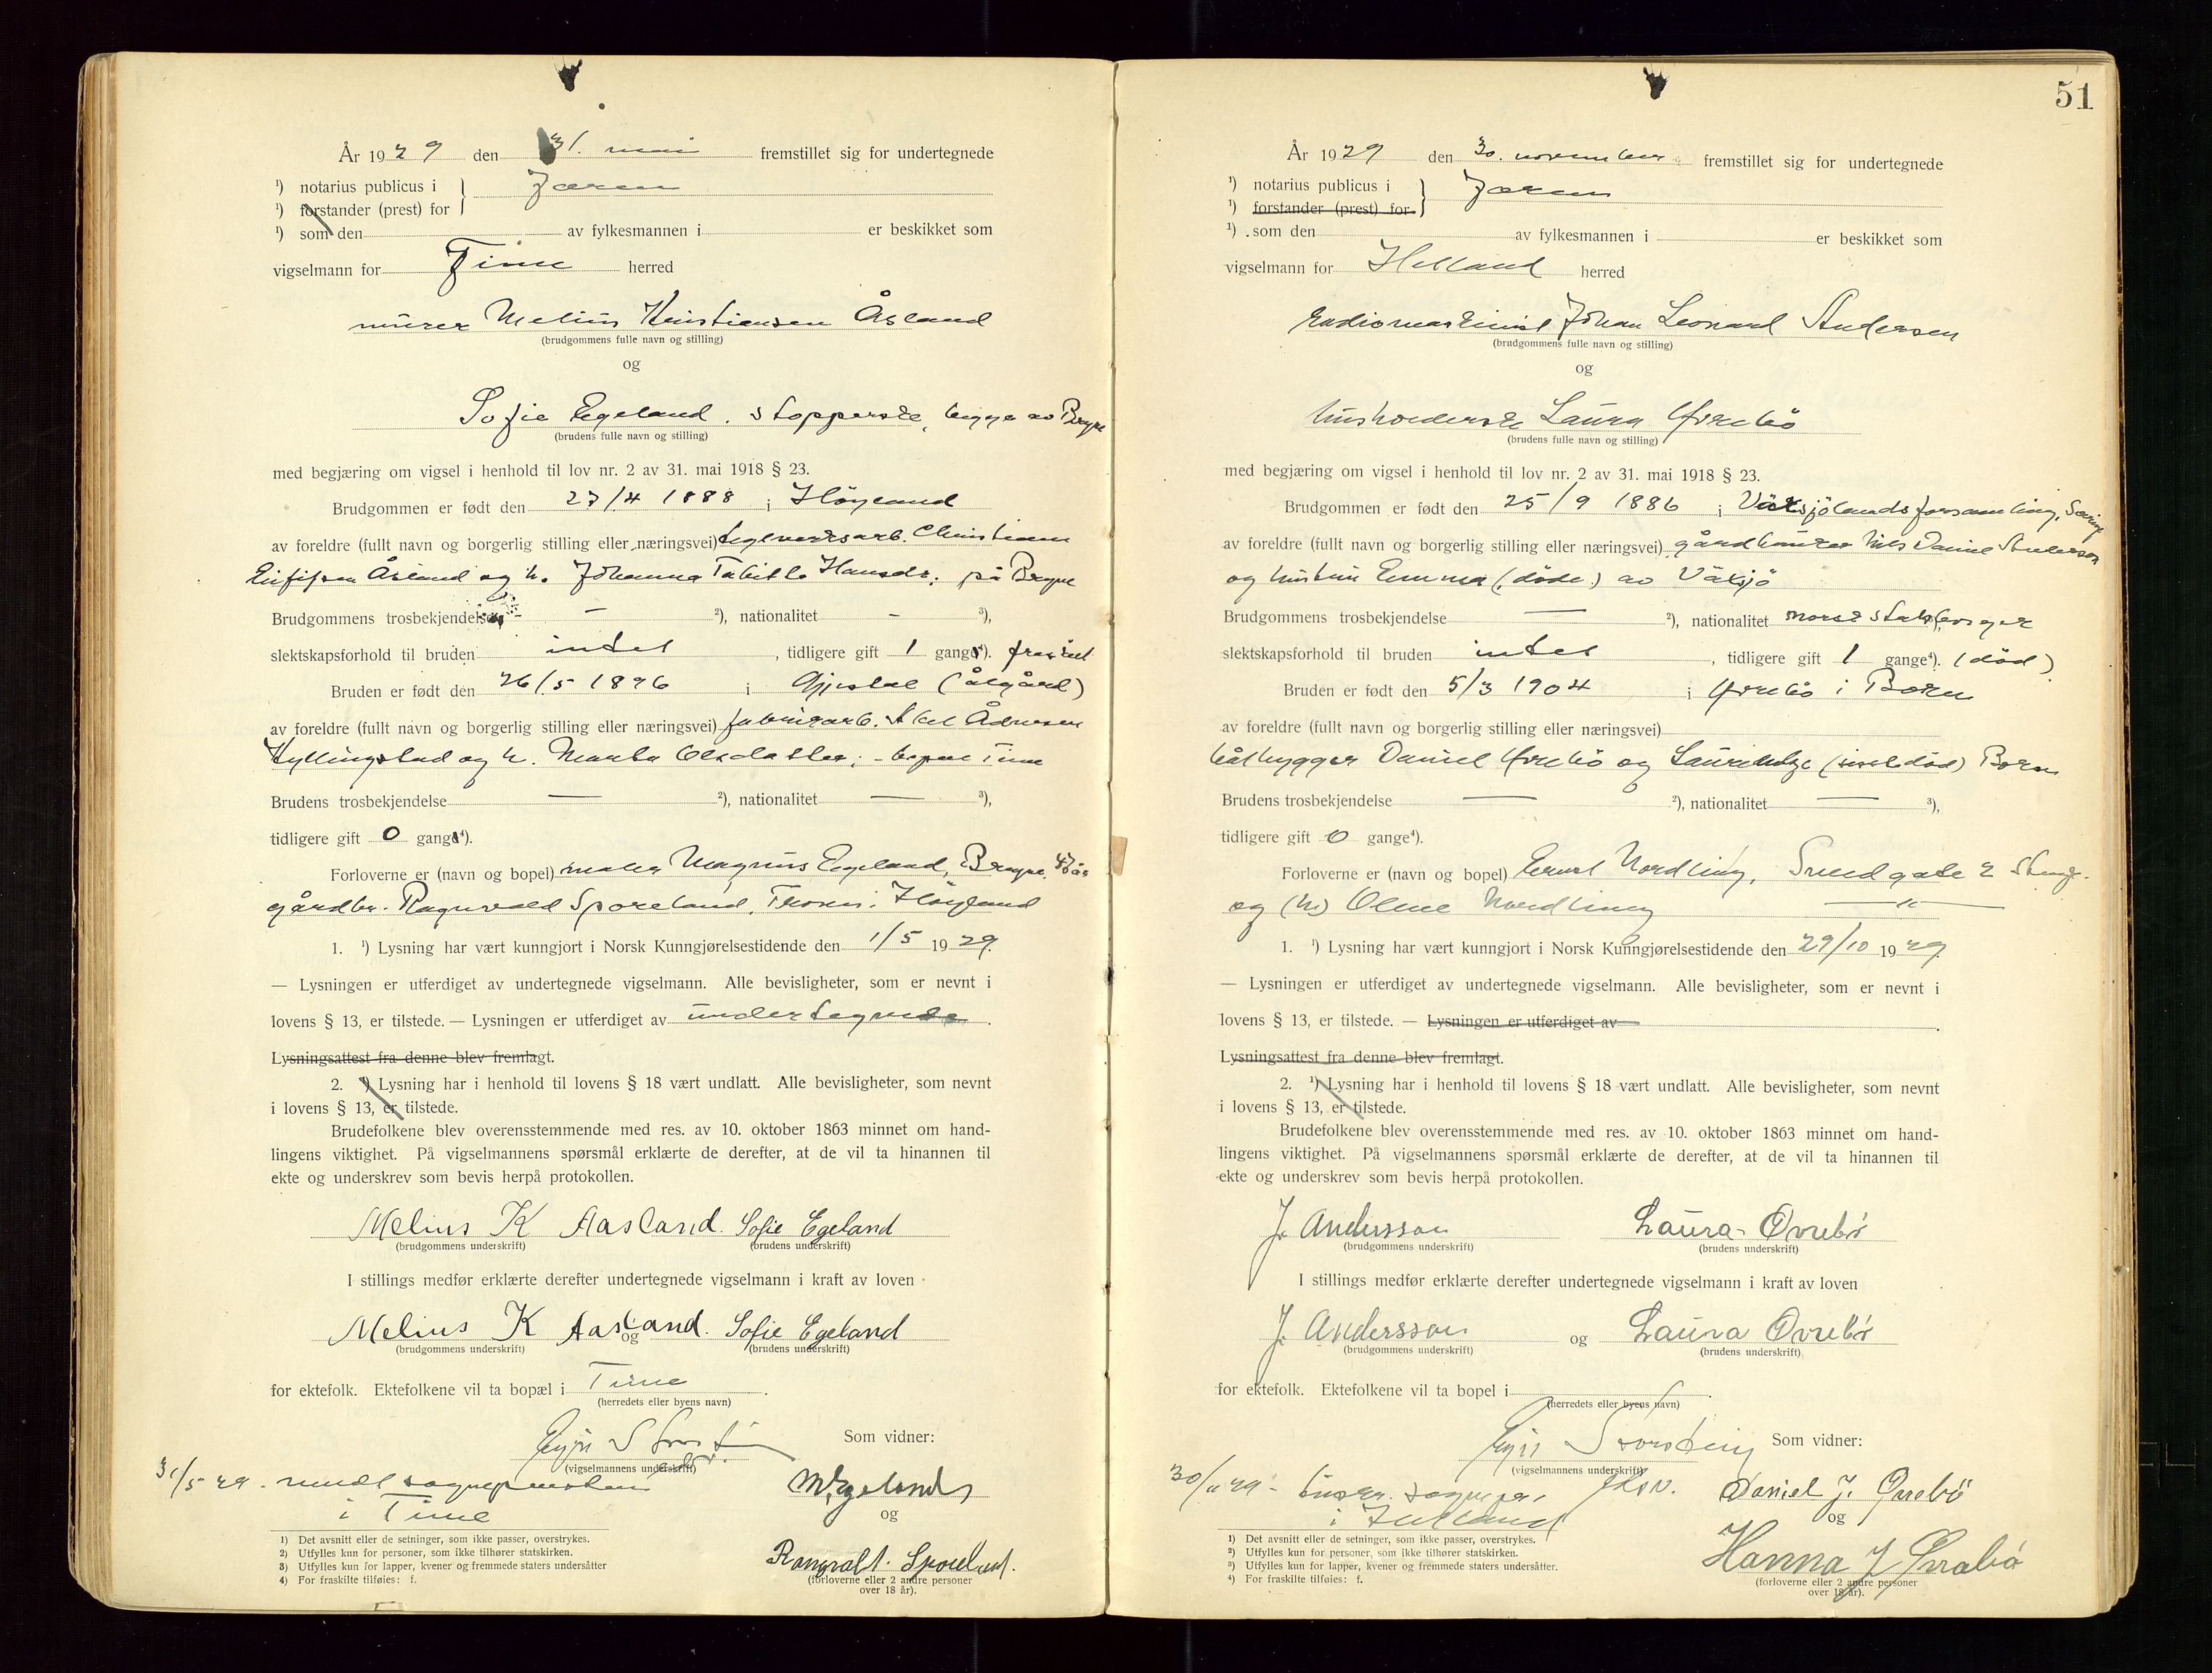 År 1929 den 31. mai fremstillet sig for undertegnede
¹) notarius publicus i } Jæren
¹) forstander (prest) for
¹) som den av fylkesmannen i er beskikket som
vigselmann for Time herred
murer Melius Kristiansen Åsland
(brudgommens fulle navn og stilling)
og
Sofie Egeland. stopperske, begge av Bryne
(brudens fulle navn og stilling)
med begjæring om vigsel i henhold til lov nr. 2 av 31. mai 1918 § 23.
Brudgommen er født den 27/4 1888 i Høyland
av foreldre (fullt navn og borgerlig stilling eller næringsvei) teglverksarb. Christian
Åsland og h. Johanna Tabitta Hansdr. på Bryne
Brudgommens trosbekjendelse — ²), nationalitet - ³),
slektskapsforhold til bruden intet, tidligere gift 1 gang⁴). fraskilt
Bruden er født den 26/5 1896 i Gjestal (Ålgård)
av foreldre (fullt navn og borgerlig stilling eller næringsvei) fabrikarb.
Kyllingstad og h. Marta Olsdatter; - Time
Brudens trosbekjendelse — ²), nationalitet — ³),
tidligere gift 0 gang⁴).
Forloverne er (navn og bopel) maler Magnus Egeland, Bryne, 43 år
gårdbr. Ragnvald Sporeland, Høyland
1. ¹) Lysning har vært kunngjort i Norsk Kunngjørelsestidende den 1/5 1929.
— Lysningen er utferdiget av undertegnede vigselmann. Alle bevisligheter, som er nevnt i
lovens § 13, er tilstede. — Lysningen er utferdiget av undertegnede.
Lysningsattest fra denne blev fremlagt.
2. ¹) Lysning har i henhold til lovens § 18 vært undlatt. Alle bevisligheter, som nevnt
i lovens § 13, er tilstede.
Brudefolkene blev overensstemmende med res. av 10. oktober 1863 minnet om hand-
lingens viktighet. På vigselmannens spørsmål erklærte de derefter, at de vil ta hinannen til
ekte og underskrev som bevis herpå protokollen.
Melius K Aasland. Sofie Egeland
(brudgommens underskrift) (brudens underskrift)
I stillings medfør erklærte derefter undertegnede vigselmann i kraft av loven
Melius K Aasland. Sofie Egeland
og
(brudgommens underskrift) (brudens underskrift)
for ektefolk. Ektefolkene vil ta bopæl i Time.
(herredets eller byens navn)
Som vidner:
(vigselmannens underskrift)
31/5 29. meldt sognepresten
i Time
M. Egeland
og
Rangvalt. Sporeland.
(forloverne eller 2 andre personer
over 18 år).
1) Det avsnitt eller de setninger, som ikke passer, overstrykes.
2) Utfylles kun for personer, som ikke tilhører statskirken.
3) Utfylles kun for lapper, kvener og fremmede staters undersåtter
4) For fraskilte tilføies: f.
51
År 1929 den 30. november fremstillet sig for undertegnede
¹) notarius publicus i } Jæren
¹) forstander (prest) for
¹) som den av fylkesmannen i er beskikket som
vigselmann for Hetland herred
radiomaskinist Johan Leonard Andersen
(brudgommens fulle navn og stilling)
og
husholderske Laura Øvrebö
(brudens fulle navn og stilling)
med begjæring om vigsel i henhold til lov nr. 2 av 31. mai 1918 § 23.
Brudgommen er født den 25/9 1886 i Växsjölandsforsamling, Sverige
av foreldre (fullt navn og borgerlig stilling eller næringsvei) gårdbruker Nils Daniel Anderson
og hustru Emma (døde) av Växjö
Brudgommens trosbekjendelse — ²), nationalitet norsk statsborger
slektskapsforhold til bruden intet, tidligere gift 1 gange⁴). (død)
Bruden er født den 5/3 1904 i Øvrebö i Boren
av foreldre (fullt navn og borgerlig stilling eller næringsvei)
båtbygger Daniel Øvrebö og
Brudens trosbekjendelse — ²), nationalitet — ³),
tidligere gift 0 gange⁴).
Forloverne er (navn og bopel) Ernst Nordling, Sundgate 2 Stvgr.
og (h) Oline Nordling — " —
1. ¹) Lysning har vært kunngjort i Norsk Kunngjørelsestidende den 29/10 1929.
— Lysningen er utferdiget av undertegnede vigselmann. Alle bevisligheter, som er nevnt i
lovens § 13, er tilstede. — Lysningen er utferdiget av .
Lysningsattest fra denne blev fremlagt.
2. ¹) Lysning har i henhold til lovens § 18 vært undlatt. Alle bevisligheter, som nevnt
i lovens § 13, er tilstede.
Brudefolkene blev overensstemmende med res. av 10. oktober 1863 minnet om hand-
lingens viktighet. På vigselmannens spørsmål erklærte de derefter, at de vil ta hinannen til
ekte og underskrev som bevis herpå protokollen.
J. Andersson Laura Övrebö
(brudgommens underskrift) (brudens underskrift)
I stillings medfør erklærte derefter undertegnede vigselmann i kraft av loven
J. Andersson og Laura Övrebö
(brudgommens underskrift) (brudens underskrift)
for ektefolk. Ektefolkene vil ta bopel i .
(herredets eller byens navn)
Som vidner:
(vigselmannens underskrift)
30/11 29 -
i Hetland
Daniel J. Øvrebö
og
Hanna J Øvrebö
(forloverne eller 2 andre personer
over 18 år).
1) Det avsnitt eller de setninger, som ikke passer, overstrykes.
2) Utfylles kun for personer, som ikke tilhører statskirken.
3) Utfylles kun for lapper, kvener og fremmede staters undersåtter.
4) For fraskilte tilføies: f.